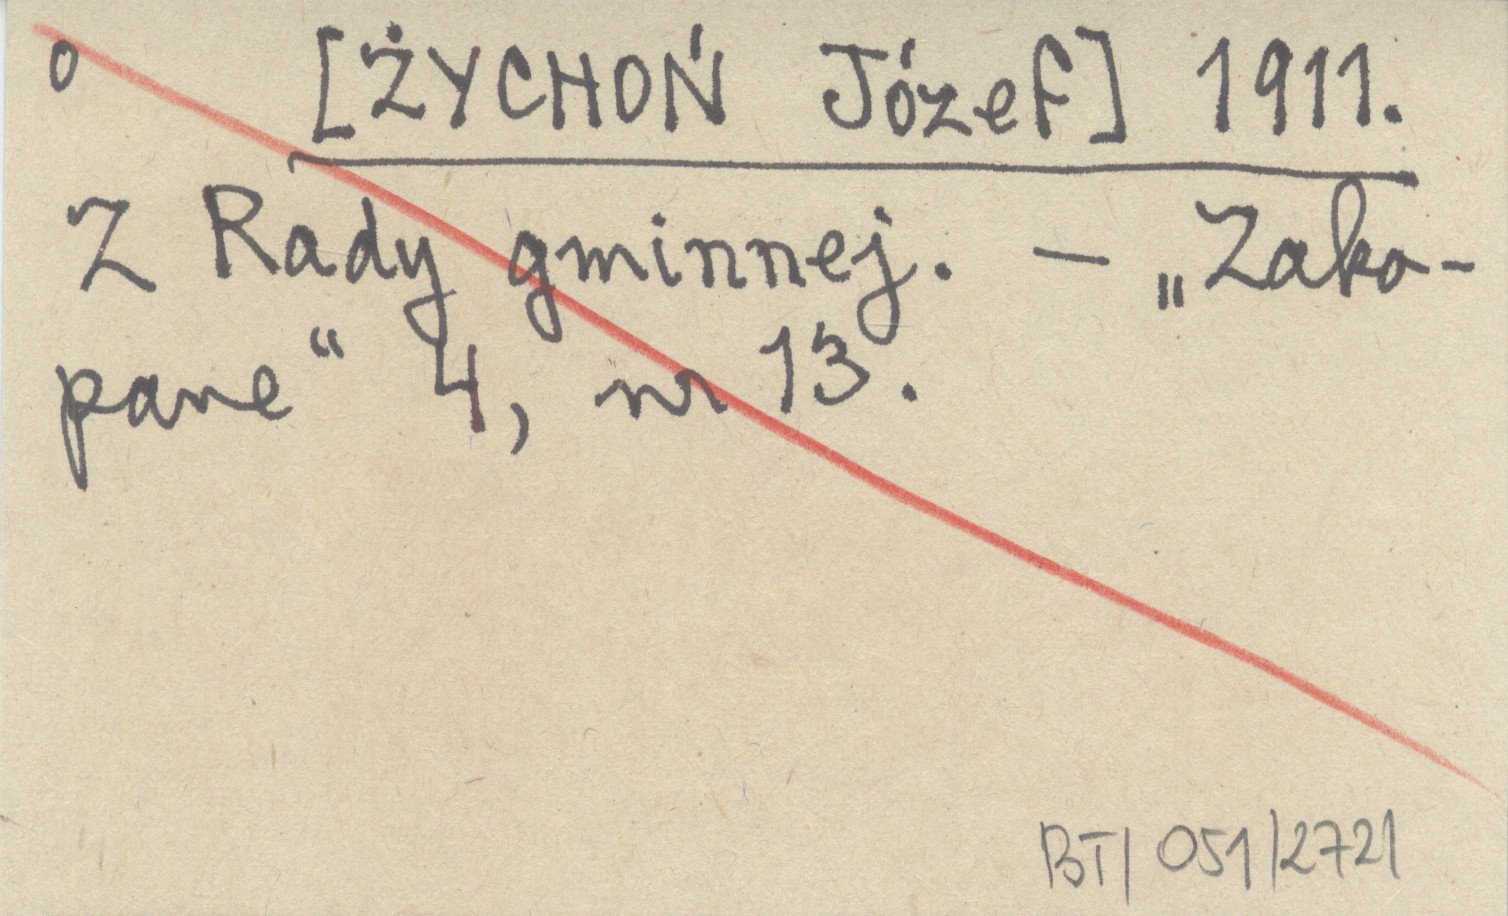 o [ŻYCHOŃ Józef] 1911.
Z Rady gminnej. – „Zako-
pane“ 4, nr 13.
BT/051/2721